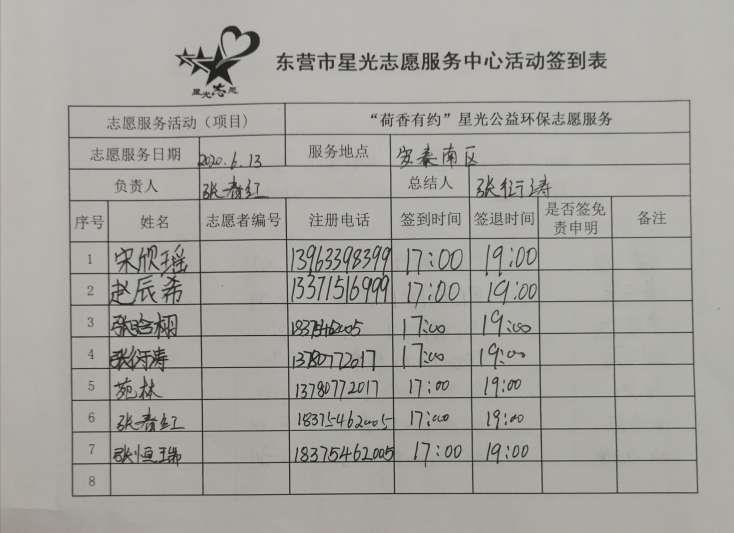 星光志愿
东营市星光志愿服务中心活动签到表
志愿服务活动（项目） “荷香有约”星光公益环保志愿服务
志愿服务日期 2020.6.13 服务地点 安泰南区
负责人 张春红 总结人 张衍涛
序号 姓名 志愿者编号 注册电话 签到时间 签退时间 是否签免责申明 备注
1 宋欣瑶 13963398399 17:00 19:00
2 赵辰希 13371516999 17:00 19:00
3 张晗栩 18375462005 17:00 19:00
4 张衍涛 13780772017 17:00 19:00
5 苑林 13780772017 17:00 19:00
6 张春红 18375462005 17:00 19:00
7 张恒瑞 18375462005 17:00 19:00
8